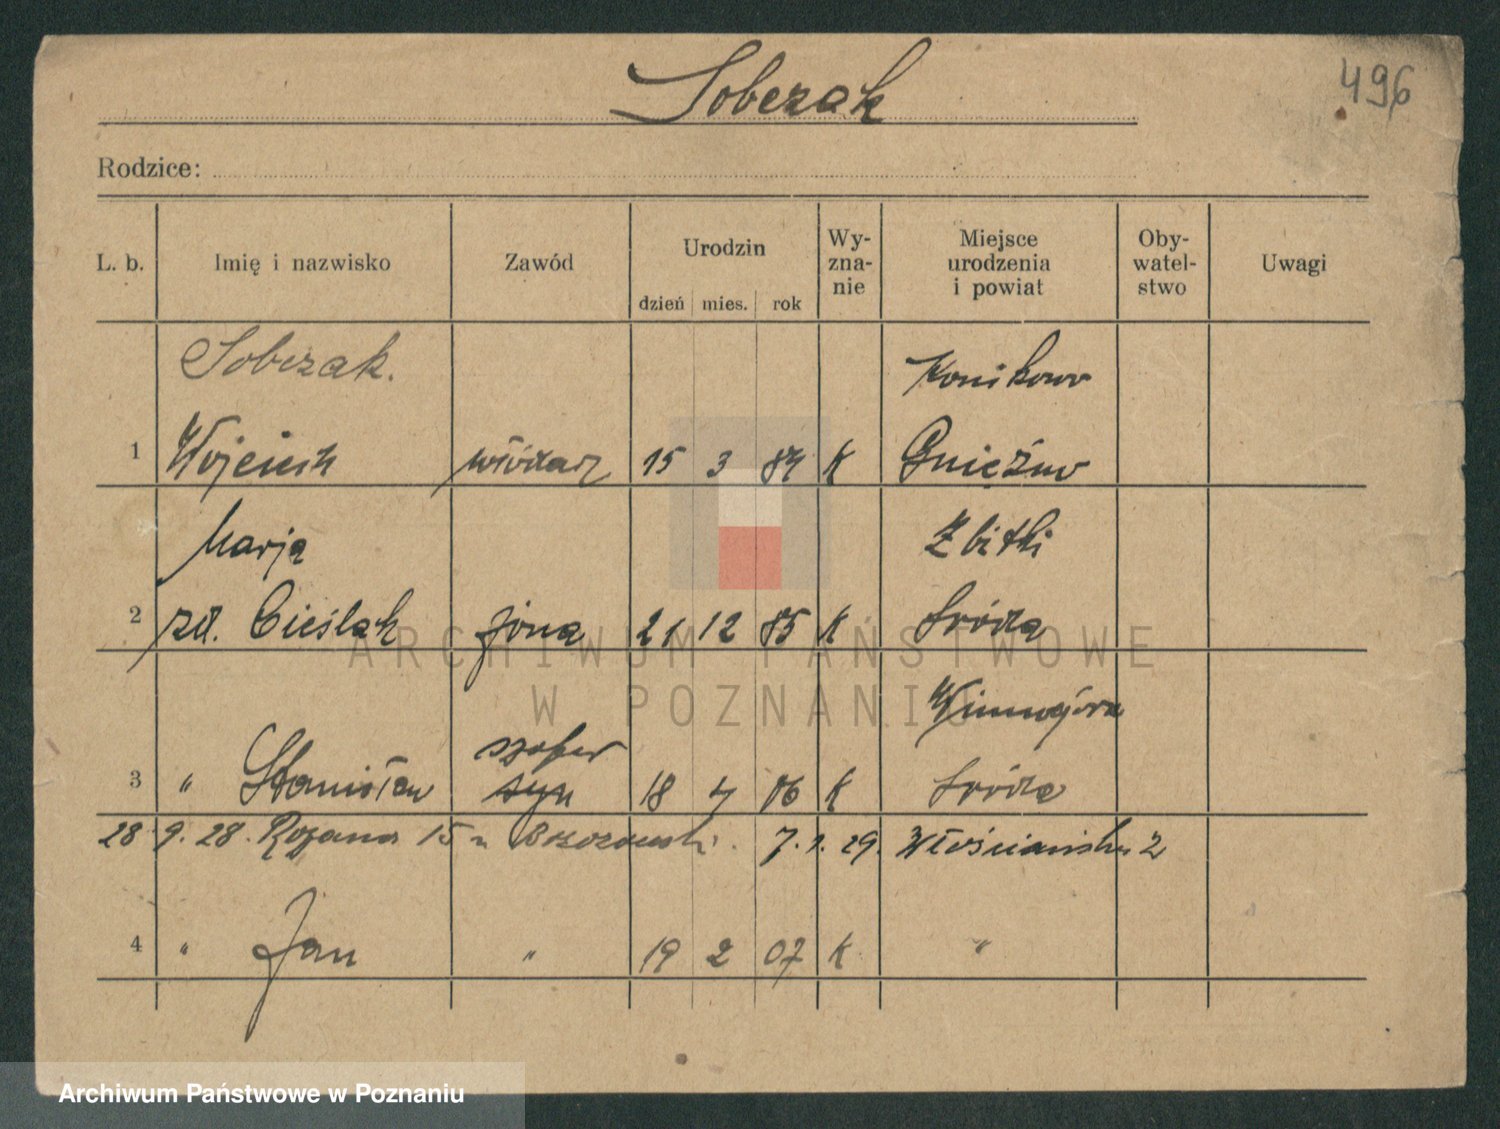 Sobczak
496
Rodzice:
L. b. Imię i nazwisko Zawód Urodzin dzień mies. rok Wy-zna-nie Miejsce urodzenia i powiat Oby-watel-stwo Uwagi
Sobczak. Konikowo
1 Wojciech włódarz 15 3 84 K Gniezno
Marja Zbitki
2 zd. Cieślak żona 21 12 85 K Środa
Winnogóra
szofer
3 " Stanisław syn 18 4 06 K Środa
28 9. 28. Różana 15 u Brzozowski. 7. 1. 29. Włościańska 2
4 " Jan " 19 2 07 K "
ARCHIWUM PAŃSTWOWE
W POZNANIU
Archiwum Państwowe w Poznaniu